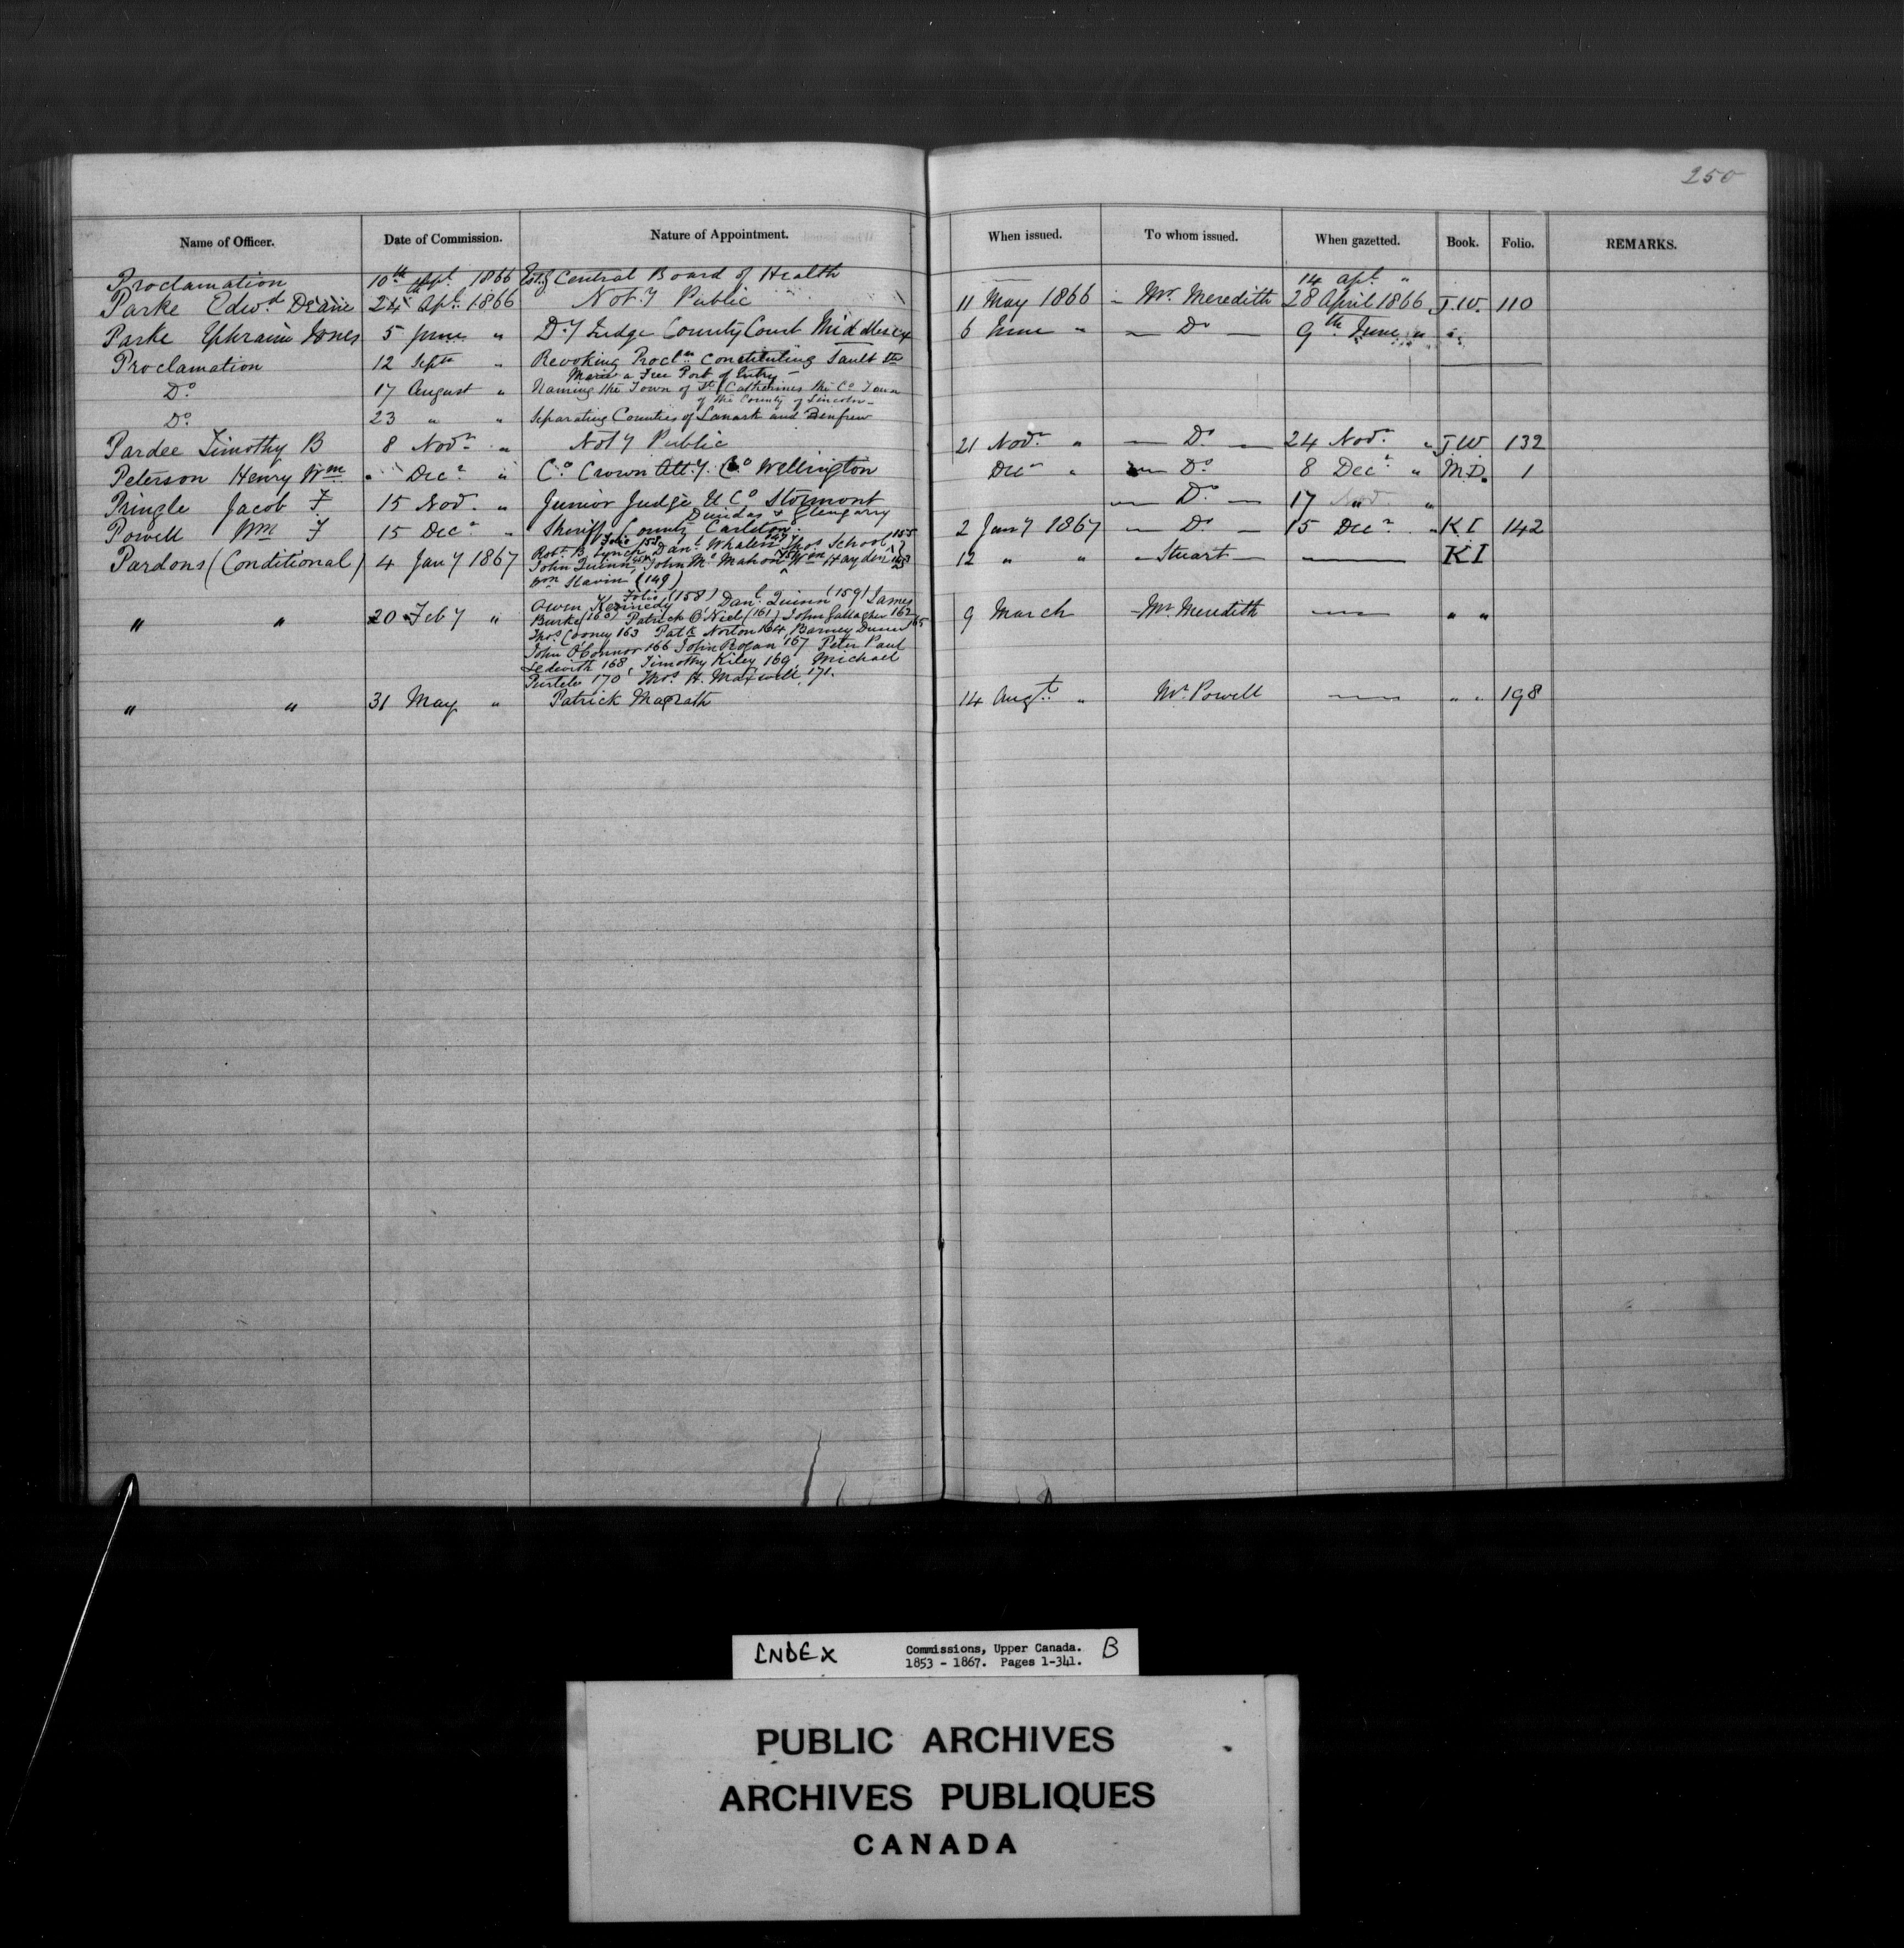 250
Name of Officer. Date of Commission. Nature of Appointment. When issued. To whom issued. When gazetted. Book. Folio. REMARKS.
Proclamation 10th Apl. 1866 Estg Central Board of Health — 14 Apl. "
Parke Edwd. Deane 24th Apl. 1866 Not.y Public 11 May 1866 — Mr. Meredith 28 April 1866 J.W. 110
Parke Ephraim Jones 5 June " D.y Judge County Court Middlesex 6 June " — Do — 9th June " "
Proclamation 12 Septr " Revoking Procln Constituting Sault Ste
Marie a Free Port of Entry —
Do. 17 August " Naming the Town of St. Catherines the Co. Town
of the County of Lincoln —
Do. 23 " " Separating Counties of Lanark and Renfrew
Pardee Timothy B 8 Novr. " Not.y Public 21 Novr. " — Do — 24 Novr. " J.W. 132
Peterson Henry Wm " Decr. " Co. Crown Att.y. Co. Wellington Decr " — Do. 8 Decr. " M.D. 1
Pringle Jacob F 15 Nov. " Junior Judge U Co Stormont — Do. — 17 Nov "
Dundas & Glengarry
Powell Wm F 15 Decr. " Sheriff County Carleton. 2 Jany 1867 — Do — 15 Decr. " K I 142
Pardons (Conditional) 4 Jany 1867 Robt. B. Lynch Folio 158 Danl. Whalen 147 Thos School 155 12 " " — Stuart — — K I
John Quinn John McMahon Wm Hayden
Wm Slavin (149)
" " 20 Feby " Owen Kennedy Folio (158) Danl. Quinn (159) James 9 March — Mr. Meredith — " "
Burke (160) Patrick O'Niel (161) John Gallagher 162
Thos. Cooney 163 Patk Norton 164 Barney Dunn 165
John O'Connor 166 John Rogan 167 Peter Paul
Ledwith 168, Timothy Kiley 169, Michael
Purtele 170 Thos. H. Maxwell 171.
" " 31 May " Patrick Magrath 14 Augt. " Mr. Powell — " " 198
INDEX Commissions, Upper Canada. B
1853 - 1867. Pages 1-341.
PUBLIC ARCHIVES
ARCHIVES PUBLIQUES
CANADA